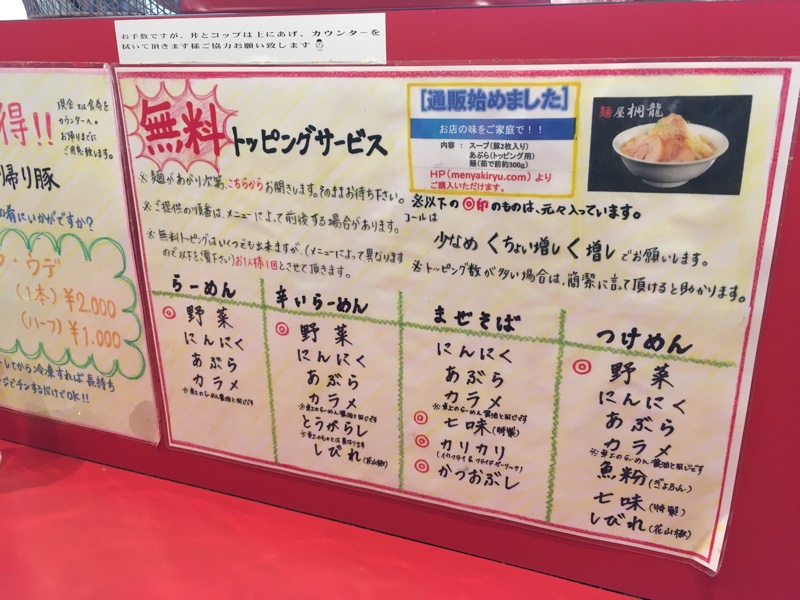 お手数ですが、丼とコップは上にあげ、カウンターを
拭いて頂きます様ご協力お願い致します
得!!
現金又は食券を
カウンターへ。
お帰りまでに
ご用意致します。
帰り豚
の肴にいかがですか?
・ウデ
(1本)¥2.000
(ハーフ)¥1.000
してから冷凍すれば長持ち
ジでチンするだけでOK!!
無料トッピングサービス
※麺があがり次第、こちらからお聞きします。そのままお待ち下さい。
※ご提供の順番は、メニューによって前後する場合があります。
※無料トッピングはいつでも出来ますが、(メニューによって異なります
ので以下をご覧下さい)お1人様1回とさせて頂きます。
[通販始めました]
お店の味をご家庭で!!
内容:スープ(豚2枚入り)
あぶら(トッピング用)
麺(茹で前約300g)
HP(menyakiryu.com)より
ご購入いただけます。
麺屋桐龍
※以下の◎印のものは、元々入っています。
コールは
少なめ<ちょい増し<増しでお願いします。
※トッピング数が多い場合は、簡潔に言って頂けると助かります。
らーめん
◎野菜
にんにく
あぶら
カラメ
※卓上のらーめん醤油と同じです
辛いらーめん
◎野菜
にんにく
あぶら
カラメ
※卓上のらーめん醤油と同じです
とうがらし
※卓上のものとは異なります
しびれ(花山椒)
まぜそば
にんにく
あぶら
カラメ
※卓上のらーめん醤油と同じです
◎七味(特製)
◎カリカリ
(イカフライ&フライドガーリック)
◎かつおぶし
つけめん
◎野菜
にんにく
あぶら
カラメ
※卓上のらーめん醤油と同じです
魚粉(ぎょふん)
七味(特製)
しびれ(花山椒)